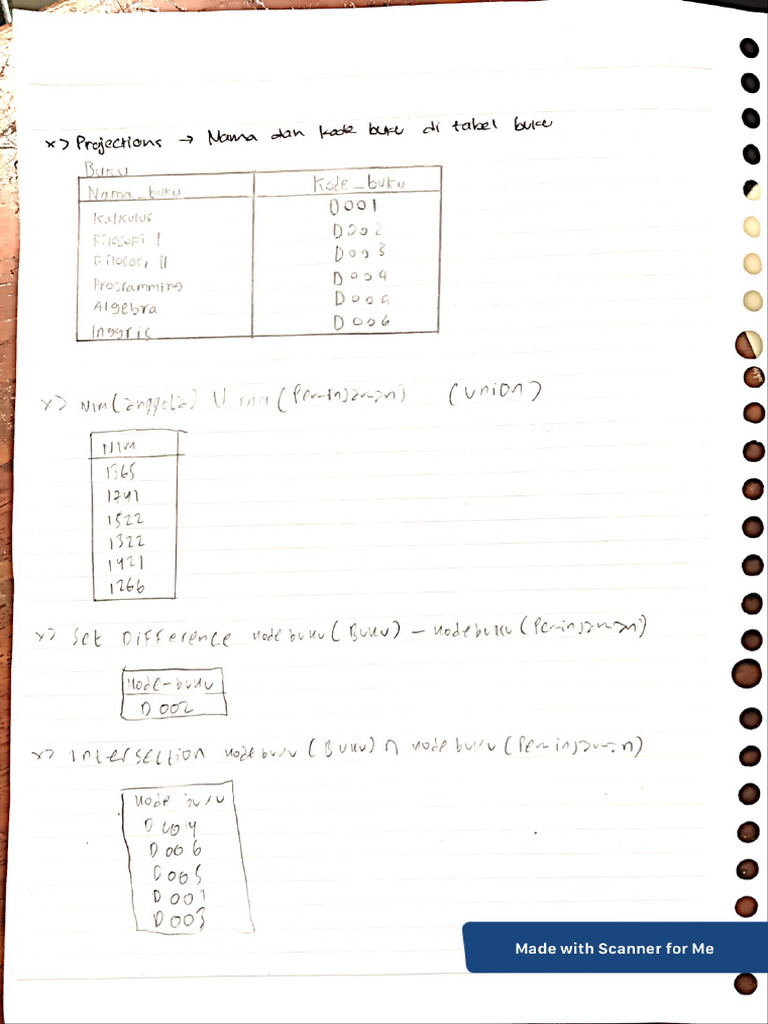 x> Projections → Nama dan kode buku di tabel buku
Buku
Nama_buku Kode_buku
Kalkulus D001
Filosofi I D002
Filosofi II D003
Programming D004
Algebra D005
Inggris D006
x> NIM (anggota) U NIM (Peminjaman) (Union)
NIM
1365
1241
1522
1322
1421
1266
x> Set Difference kodebuku (Buku) - kodebuku (Peminjaman)
Kode-buku
D002
x> Intersection kodebuku (Buku) ∩ kodebuku (Peminjaman)
Kode buku
D004
D006
D005
D001
D003
Made with Scanner for Me